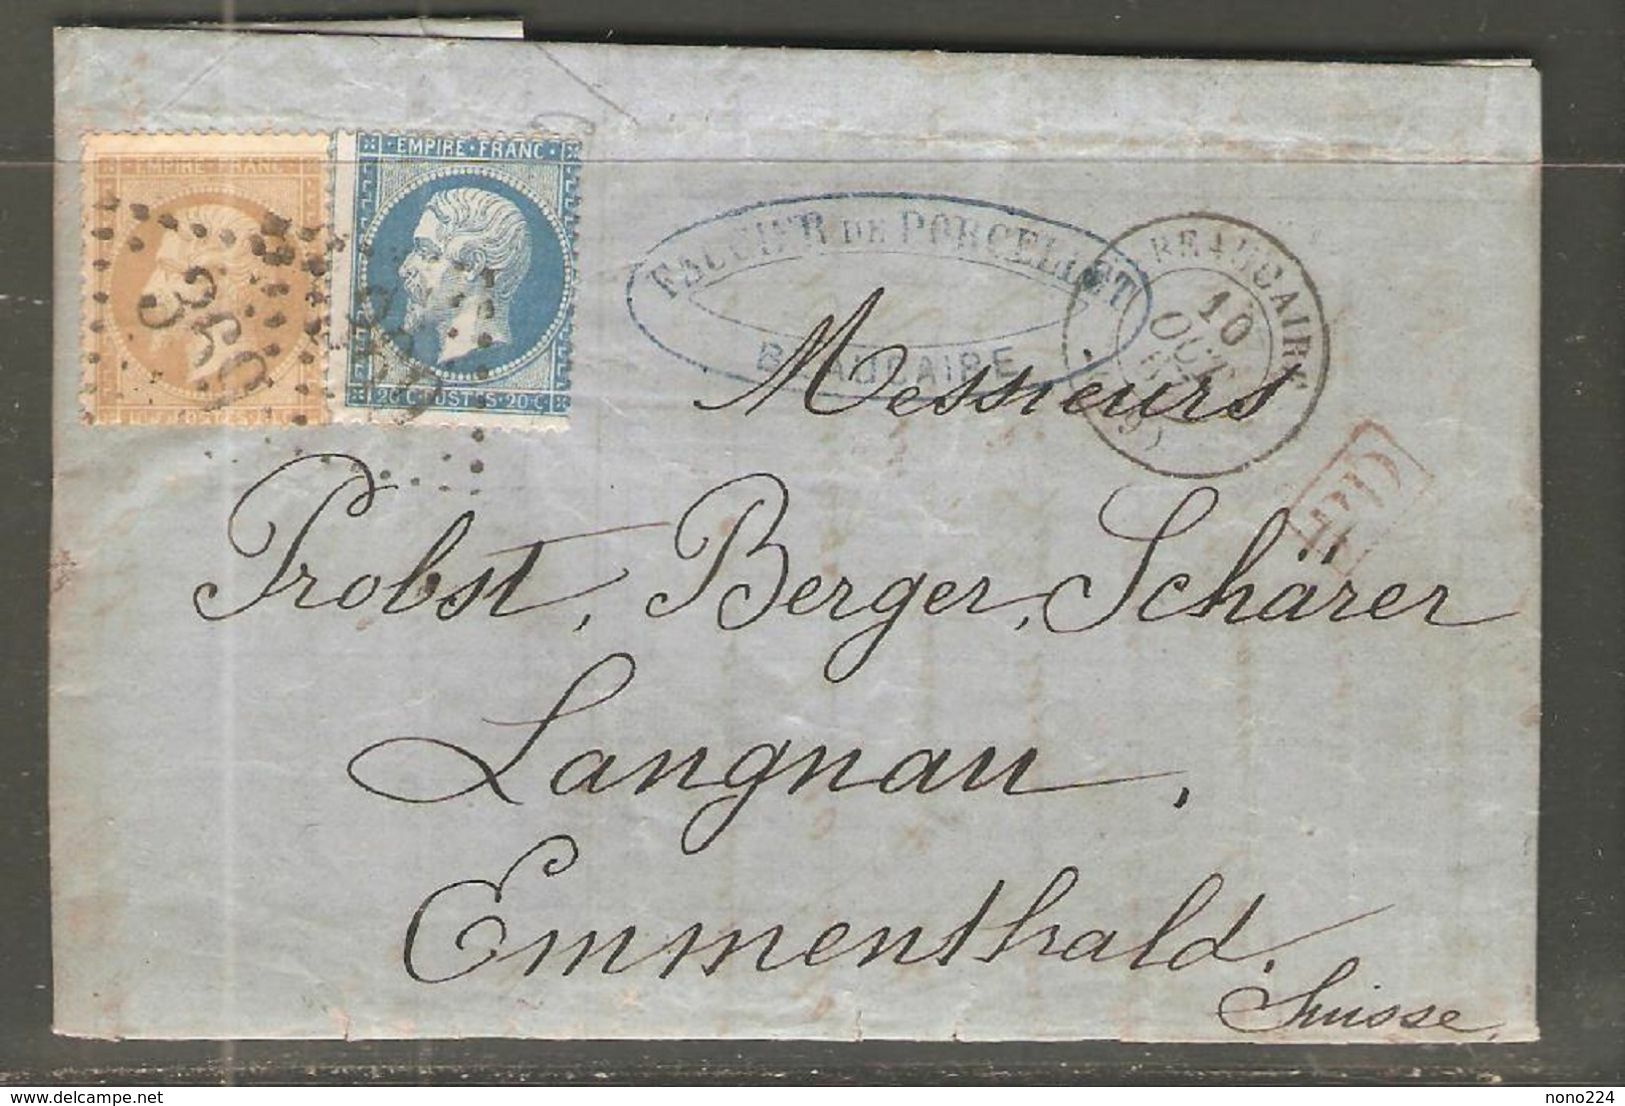 EMPIRE FRANC
EMPIRE FRANC
20 C POSTES 20 C
360
360
DE PORCELLET
BEAUCAIRE
BEAUCAIRE
10
OCT
PD
Messieurs
Probst, Berger, Schärer
Langnau,
Emmenthald.
Suisse,
nono224